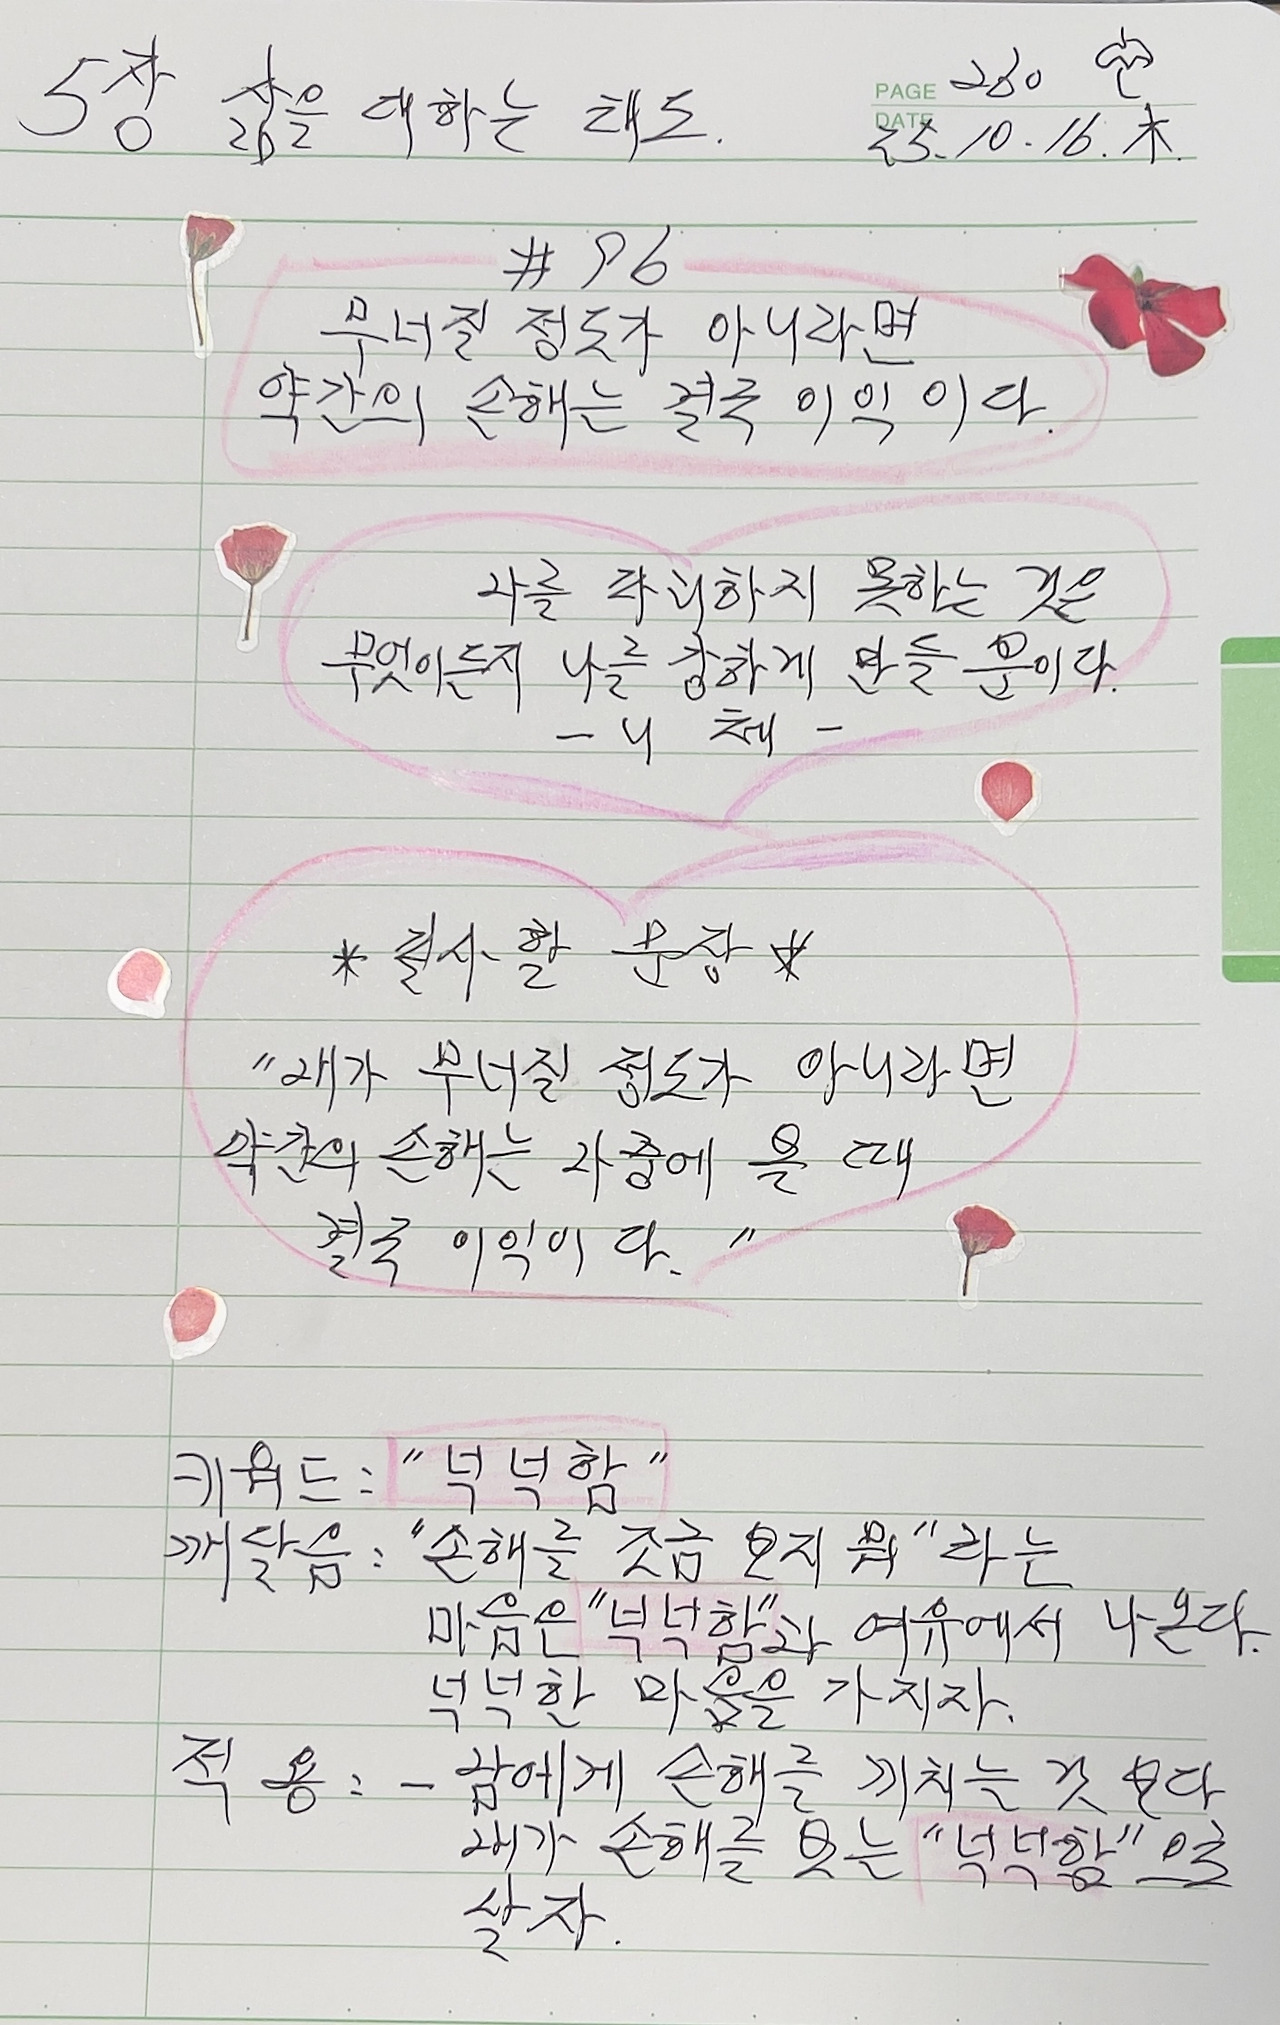 5장 삶을 대하는 태도.
PAGE 260
DATE 25.10.16.木.
#96
무너질 정도가 아니라면
약간의 손해는 결국 이익이다.
나를 파괴하지 못하는 것은
무엇이든지 나를 강하게 만들 뿐이다.
- 니체 -
* 필사할 문장 *
"내가 무너질 정도가 아니라면
약간의 손해는 나중에 올 때
결국 이익이다."
키워드 : "넉넉함"
깨달음 : "손해를 조금 보지 뭐"라는
마음은 "넉넉함"과 여유에서 나온다.
넉넉한 마음을 가지자.
적용 : - 남에게 손해를 끼치는 것 보다
내가 손해를 보는 "넉넉함"으로
살자.